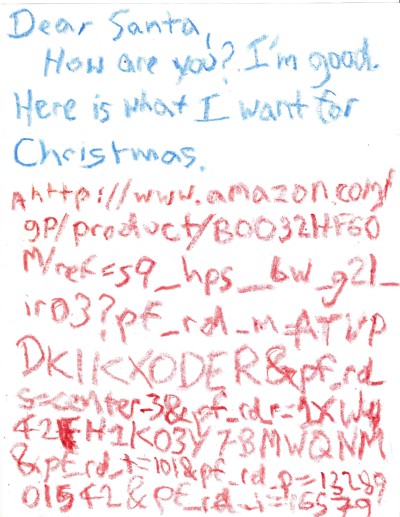 Dear Santa,
How are you? I'm good.
Here is what I want for
Christmas.
A http://www.amazon.com/
gp/product/B0032HF60
M/ref=s9_hps_bw_g21_
ir03?pf_rd_m=ATVP
DKIKX0DER&pf_rd
s=center-3&pf_rd_r=1XWY
42FH1K03Y78MWQNM
&pf_rd_t=101&pf_rd_p=13289
01542&pf_rd_i=16579